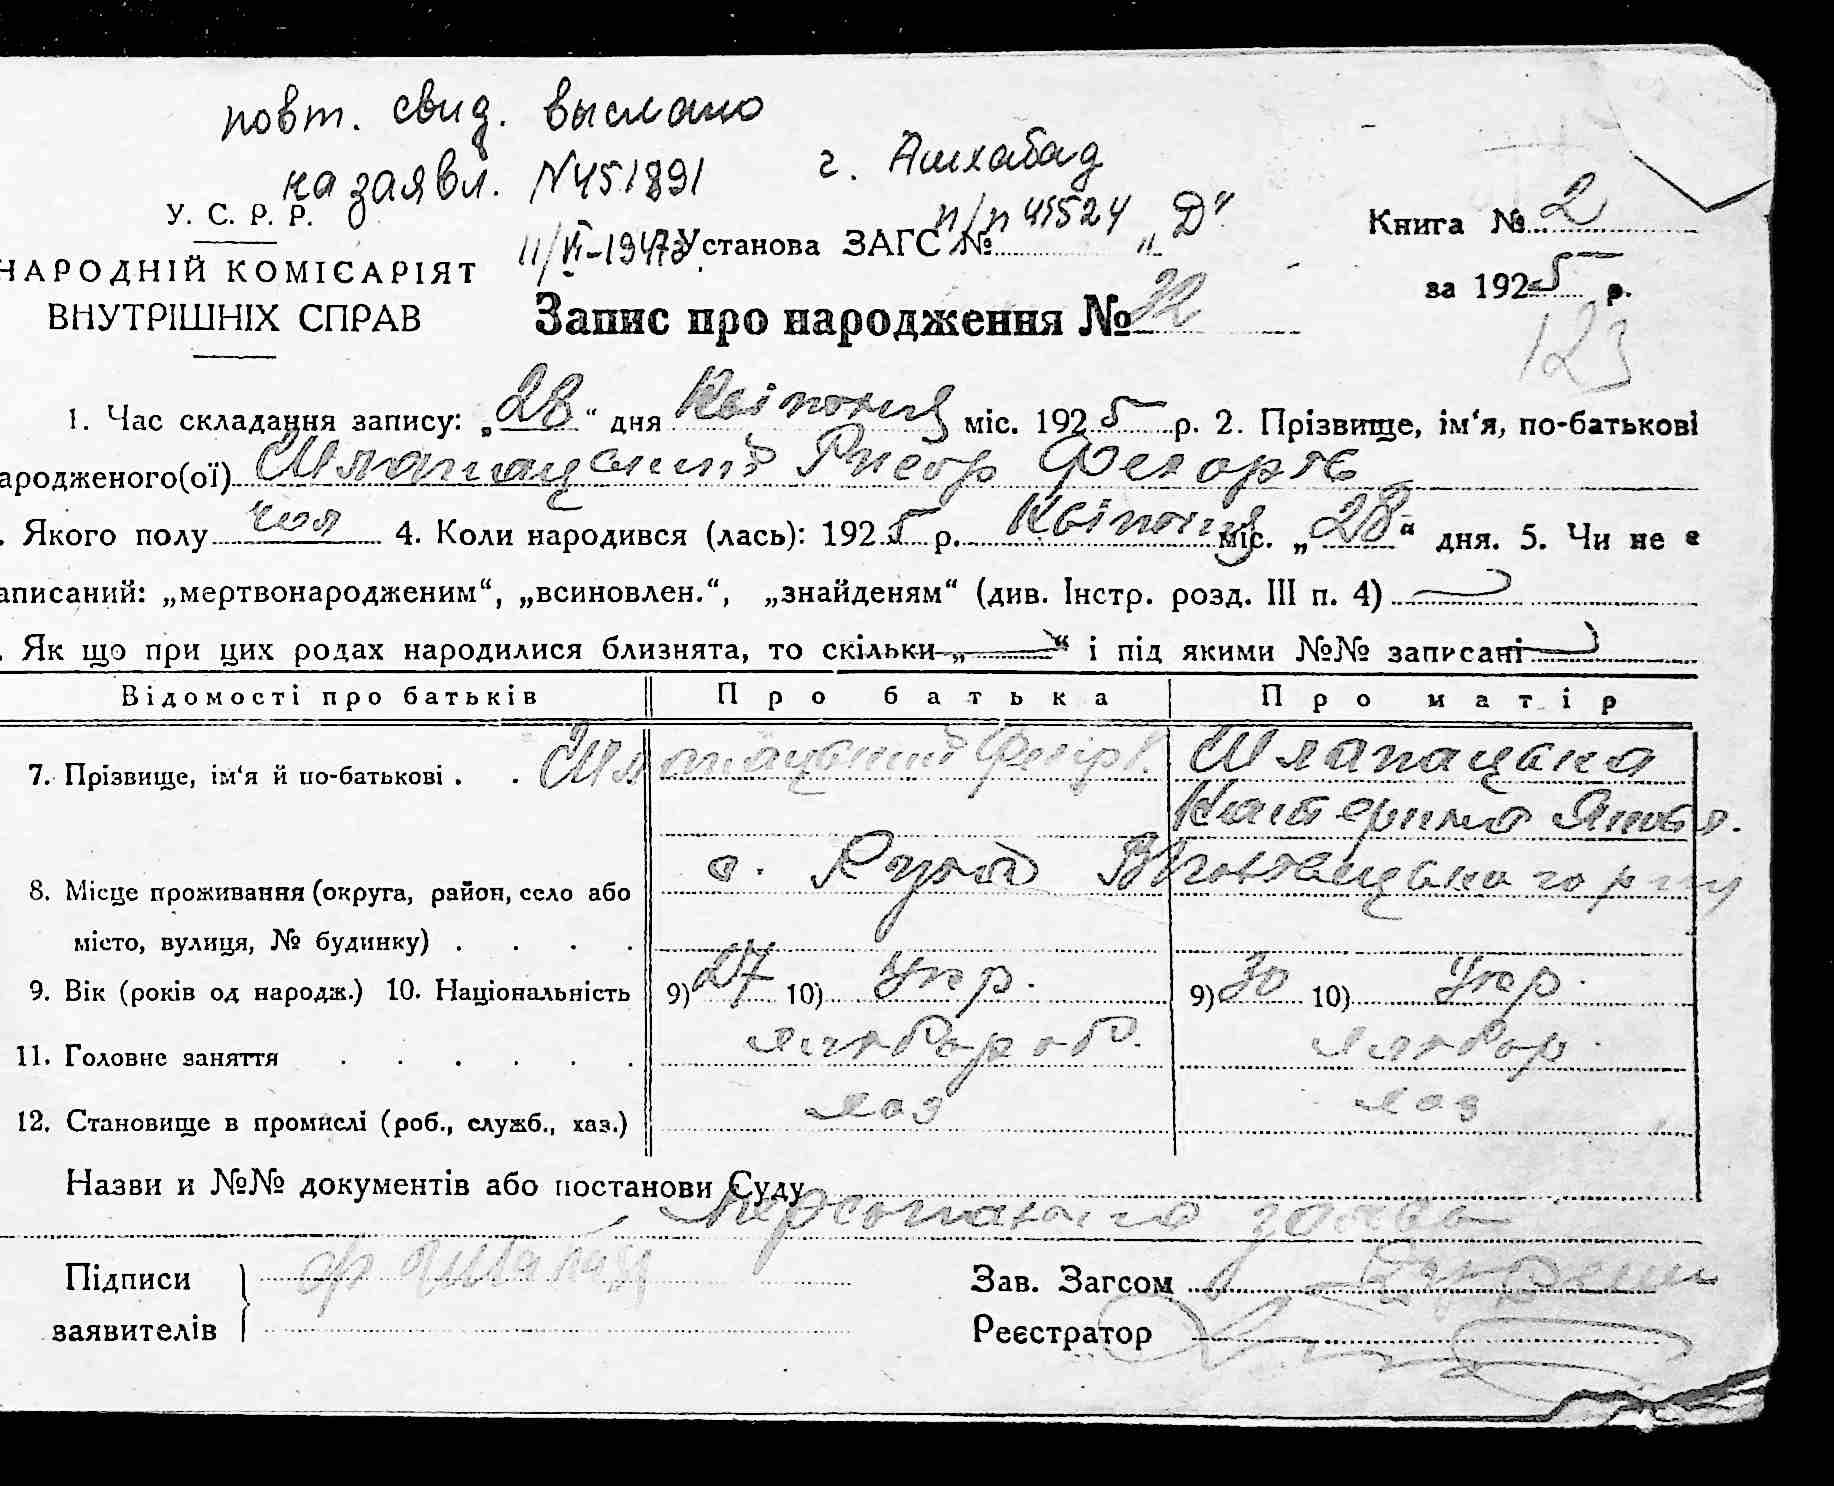 повт. свид. выслано
на заявл. N451891 г. Ашхабад
У. С. Р. Р.
п/п 41524 „Д“
11/VI-1947 Установа ЗАГС №
Книга № 2
НАРОДНІЙ КОМІСАРІЯТ
ВНУТРІШНІХ СПРАВ
за 1925 р.
Запис про народження № 32
123
1. Час складання запису: „28“ дня Квітня міс. 1925 р. 2. Прізвище, ім‘я, по-батькові
ародженого(ої) Шлапацький Фед
. Якого полу чол 4. Коли народився (лась): 1925 р. Квітня міс. „28“ дня. 5. Чи не є
аписаний: „мертвонародженим“, „всиновлен.“, „знайденям“ (див. Інстр. розд. III п. 4)
. Як що при цих родах народилися близнята, то скільки „ “ і під якими №№ записані
Відомості про батьків Про батька Про матір
7. Прізвище, ім‘я й по-батькові . . Шлапацький Шлапацька
Катерина Яковл.
с.
8. Місце проживання (округа, район, село або
місто, вулиця, № будинку) . . . .
9. Вік (років од народж.) 10. Національність 9) 27 10) Укр. 9) 30 10) Укр.
11. Головне заняття . . . . . . хлібороб. хлібор.
12. Становище в промислі (роб., служб., хаз.) хаз хаз
Назви и №№ документів або постанови Суду
Персональна заява
Підписи
заявителів
Зав. Загсом
Реєстратор